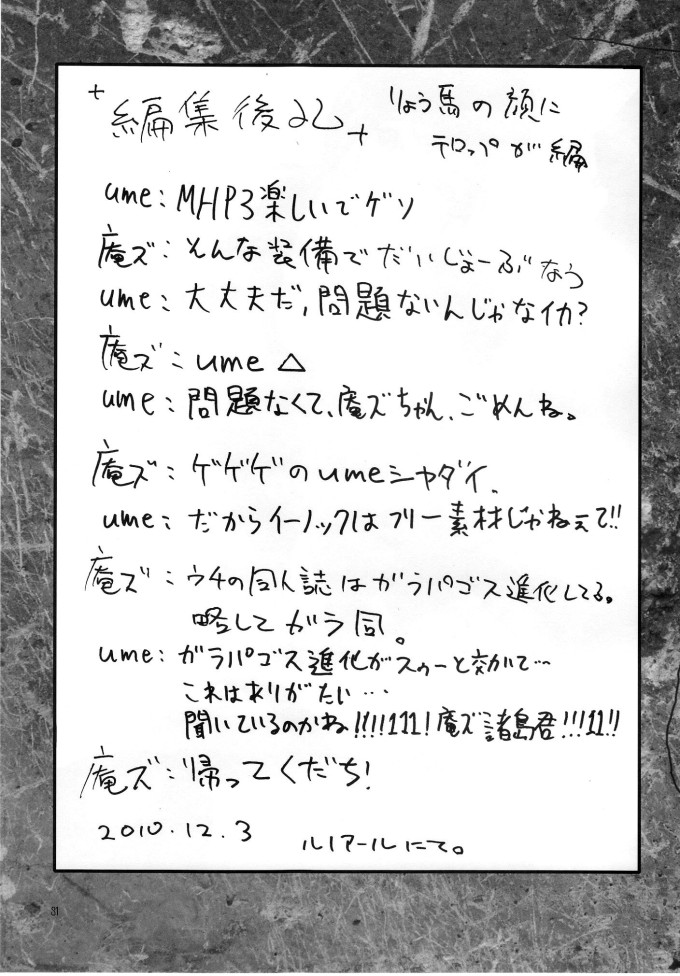 編集後記
りょう馬の顔に
テロップが編
ume:MHP3楽しいでゲソ
庵ズ:そんな装備でだいじょーぶなう
ume:大丈夫だ,問題ないんじゃなイカ?
庵ズ:ume△
ume:問題なくて、庵ズちゃん、ごめんね。
庵ズ:ゲゲゲのumeシャダイ、
ume:だからイーノックはフリー素材じゃねぇて!!
庵ズ:ウチの同人誌はガラパゴス進化してる。
略してガラ同。
ume:ガラパゴス進化がスゥーと効いて…
これはありがたい…
聞いているのかね!!!!111!庵ズ諸島君!!!11!!
庵ズ:帰ってくだち!
2010.12.3
ルノアールにて。
31